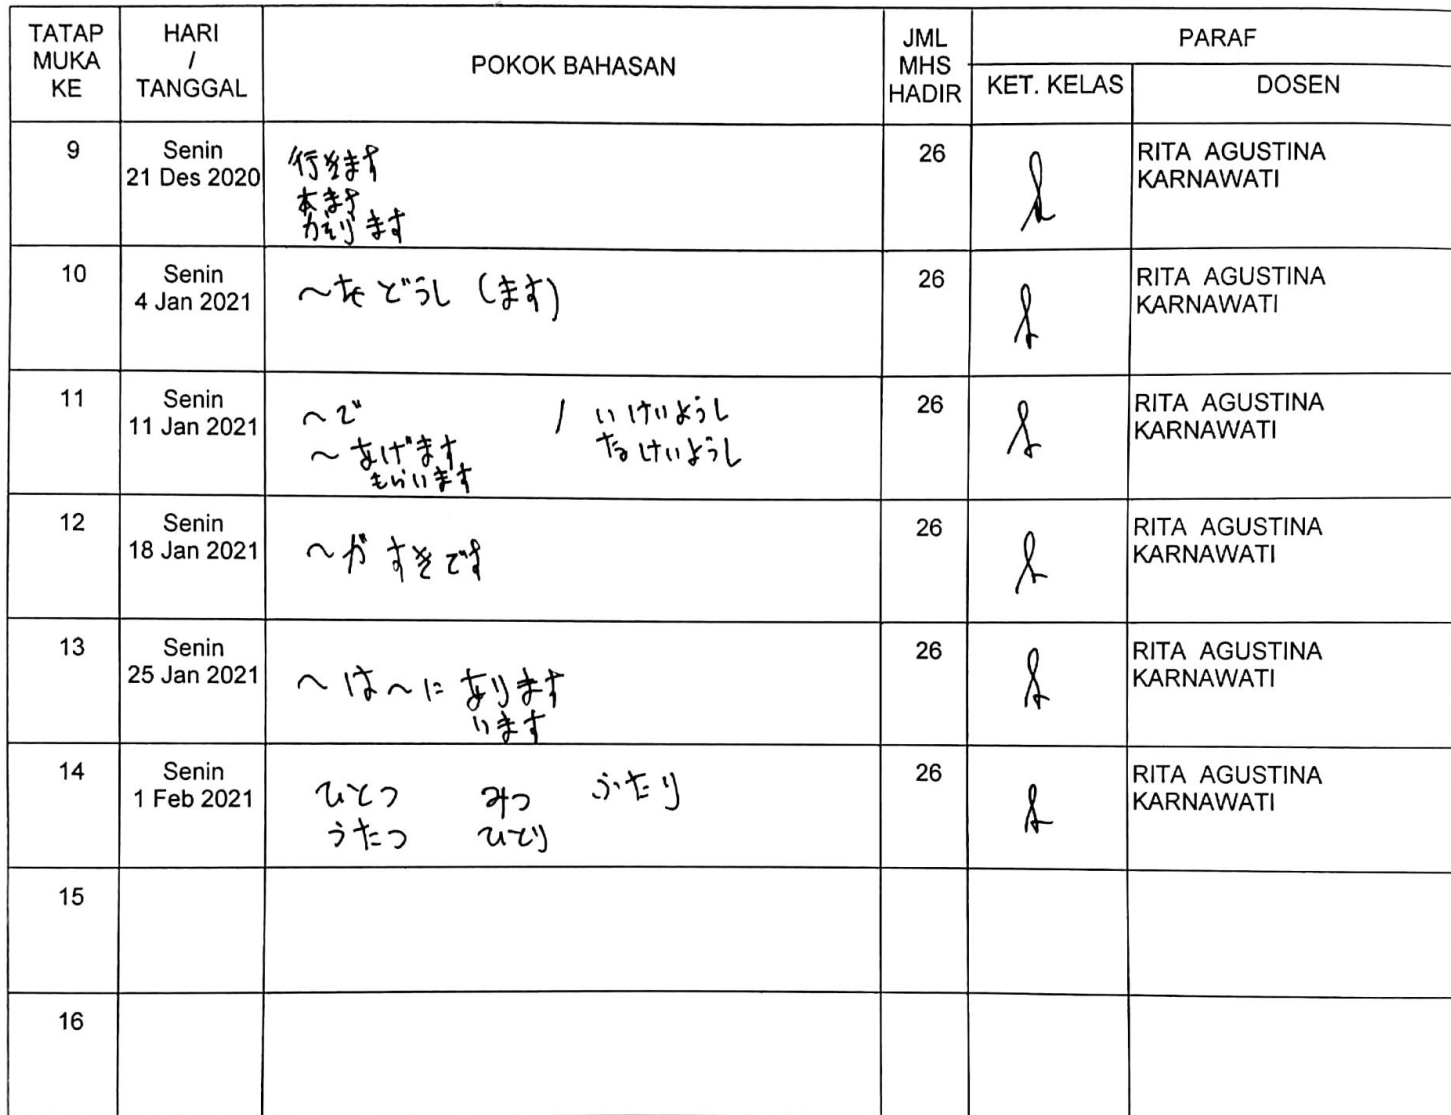 TATAP MUKA KE
HARI / TANGGAL
POKOK BAHASAN
JML MHS HADIR
PARAF
KET. KELAS
DOSEN
9
Senin
21 Des 2020
行きます
来ます
かえります
26
RITA AGUSTINA
KARNAWATI
10
Senin
4 Jan 2021
～を どうし (ます)
26
RITA AGUSTINA
KARNAWATI
11
Senin
11 Jan 2021
～で / いけいようし
～あげます なけいようし
もらいます
26
RITA AGUSTINA
KARNAWATI
12
Senin
18 Jan 2021
～が すきです
26
RITA AGUSTINA
KARNAWATI
13
Senin
25 Jan 2021
～は～に あります
います
26
RITA AGUSTINA
KARNAWATI
14
Senin
1 Feb 2021
ひとつ みつ ふたり
うたつ ひとり
26
RITA AGUSTINA
KARNAWATI
15
16